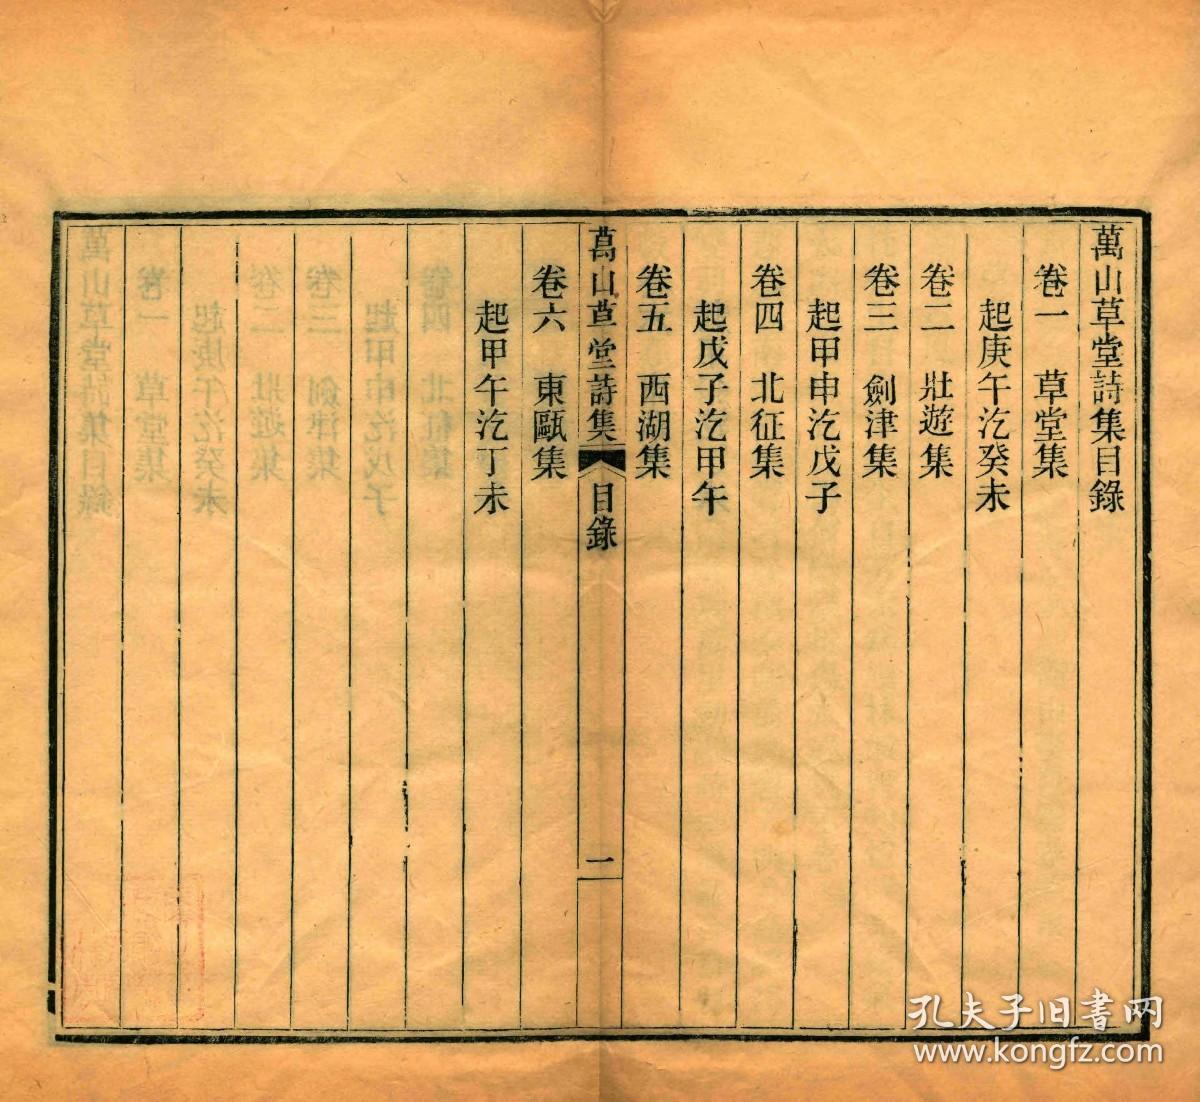 萬山草堂詩集目錄
卷一　草堂集
起庚午汔癸未
卷二　壯遊集
卷三　劍津集
起甲申汔戊子
卷四　北征集
起戊子汔甲午
卷五　西湖集
萬山草堂詩集　目錄　一
卷六　東甌集
起甲午汔丁未
孔夫子旧书网
www.kongfz.com